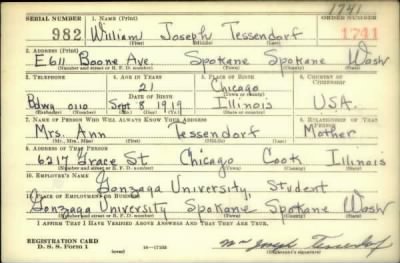 1741
SERIAL NUMBER 1. NAME (Print) ORDER NUMBER
982 William Joseph Tessendorf 1741
(First) (Middle) (Last)
2. ADDRESS (Print)
E611 Boone Ave. Spokane Spokane Wash
(Number and street or R. F. D. number) (Town) (County) (State)
3. TELEPHONE 4. AGE IN YEARS 5. PLACE OF BIRTH 6. COUNTRY OF CITIZENSHIP
21 Chicago
DATE OF BIRTH (Town or county)
Bdwy 0110 Sept 8 1919 Illinois USA.
(Exchange) (No.) (Mo.) (Day) (Yr.) (State or country)
7. NAME OF PERSON WHO WILL ALWAYS KNOW YOUR ADDRESS 8. RELATIONSHIP OF THAT PERSON
Mrs. Ann Tessendorf Mother
(Mr., Mrs., Miss) (First) (Middle) (Last)
9. ADDRESS OF THAT PERSON
6217 Grace St Chicago Cook Illinois
(Number and street or R. F. D. number) (Town) (County) (State)
10. EMPLOYER'S NAME
Gonzaga University, Student
11. PLACE OF EMPLOYMENT OR BUSINESS
Gonzaga University Spokane Spokane Wash
(Number and street or R. F. D. number) (Town) (County) (State)
I AFFIRM THAT I HAVE VERIFIED ABOVE ANSWERS AND THAT THEY ARE TRUE.
REGISTRATION CARD
D. S. S. Form 1 (over) 16—17105 Wm Joseph Tessendorf
(Registrant's signature)